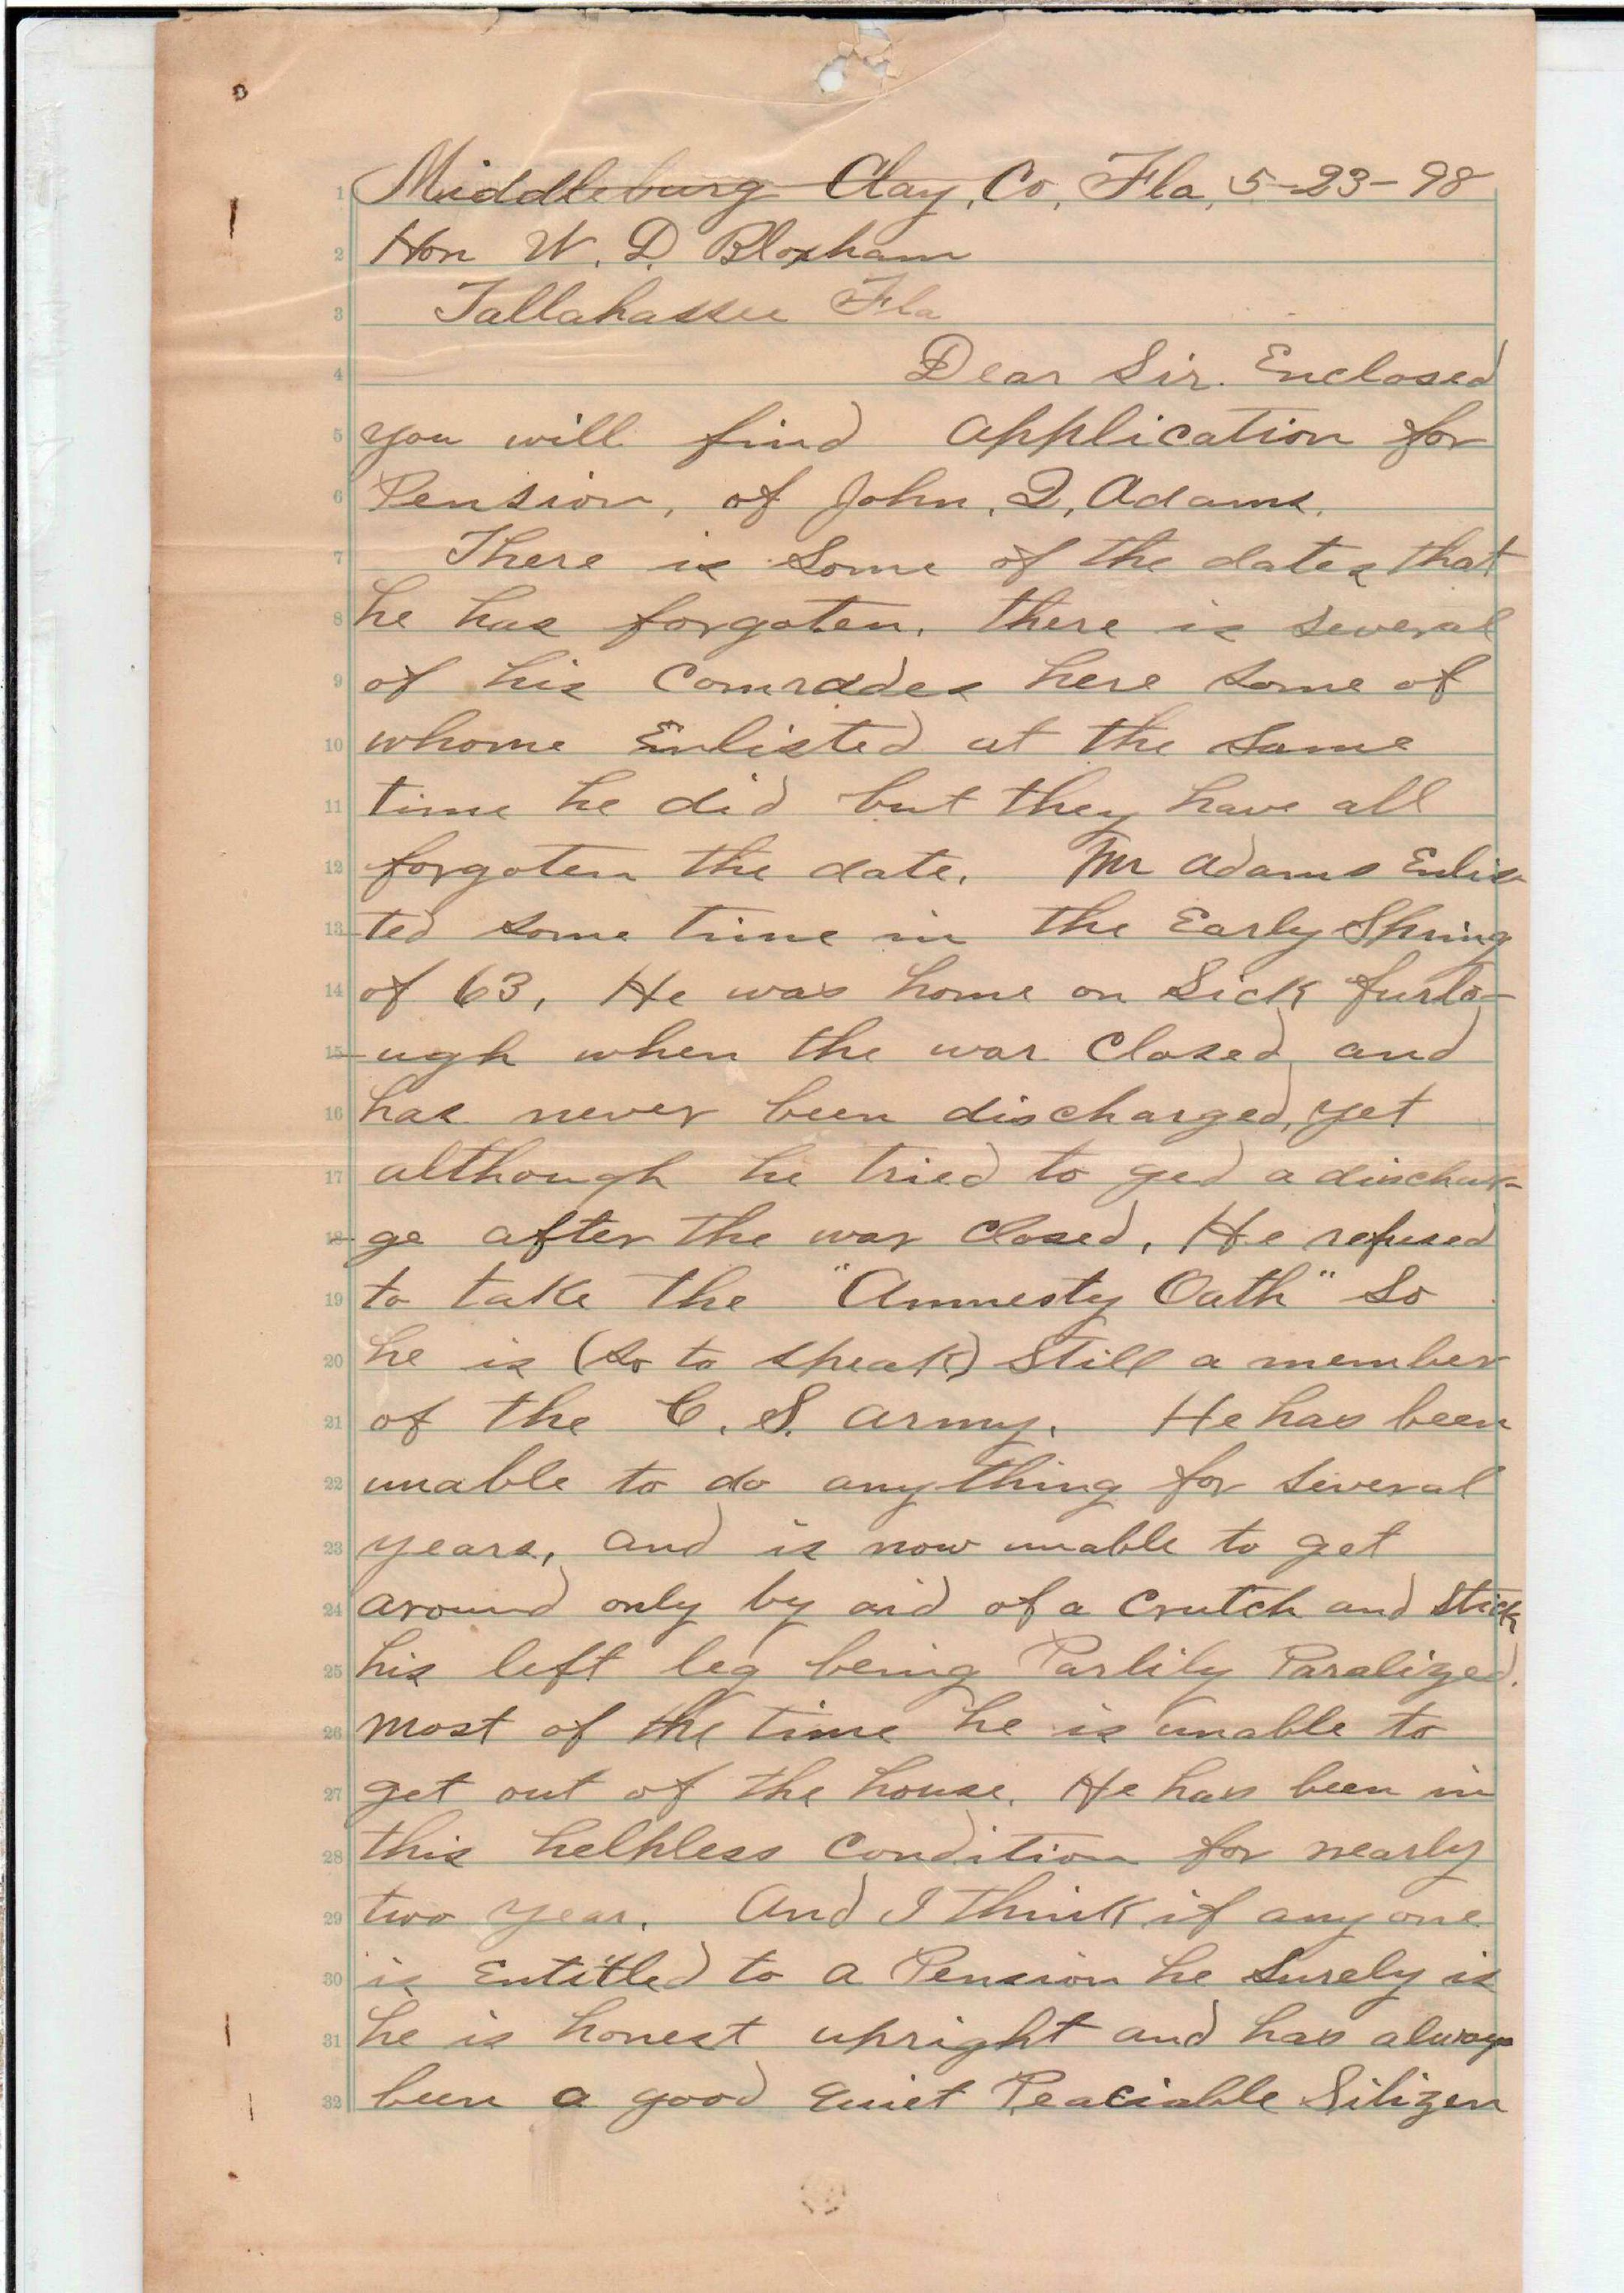 1 Middleburg Clay, Co, Fla, 5-23-98
2 Hon W. D. Bloxham
3 Tallahassee Fla
4 Dear Sir. Enclosed
5 you will find application for
6 Pension, of John, Q, Adams.
7 There is some of the dates that
8 he has forgoten. there is several
9 of his Comrades here some of
10 whome Enlisted at the same
11 time he did but they have all
12 forgoten the date. Mr Adams Enlis-
13 ted some time in the Early Spring
14 of 63, He was home on Sick furlo-
15 ugh when the war Closed and
16 has never been discharged, yet
17 although he tried to ged a dischar-
18 ge after the war closed, He refused
19 to take the "Amnesty Oath" So
20 he is (so to speak) Still a member
21 of the C. S. army. He has been
22 unable to do anything for several
23 years, and is now unable to get
24 around only by aid of a Crutch and Stick
25 his left leg being Partily Paralized.
26 most of the time he is unable to
27 get out of the house. He has been in
28 this helpless Condition for nearly
29 two year. And I think if any one
30 is Entitled to a Pension he Surely is
31 he is honest upright and has always
32 been a good quiet Peaciable Sitizen